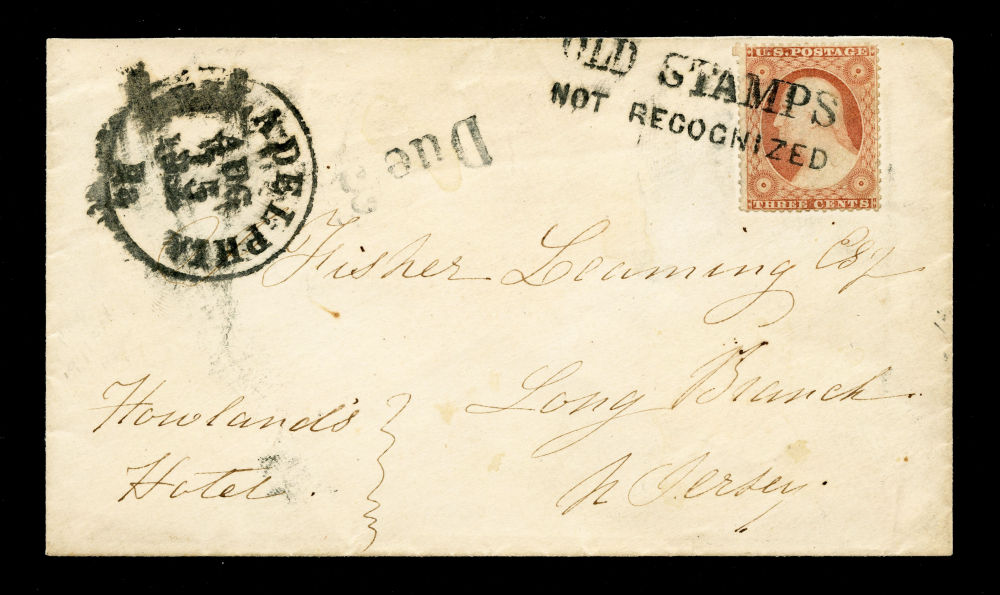 OLD STAMPS
NOT RECOGNIZED
U.S. POSTAGE
THREE CENTS
ADELPHIA
AUG
15
Pa
Due 3
Fisher Leaming Esq
Long Branch
N Jersey.
Howland's
Hotel.